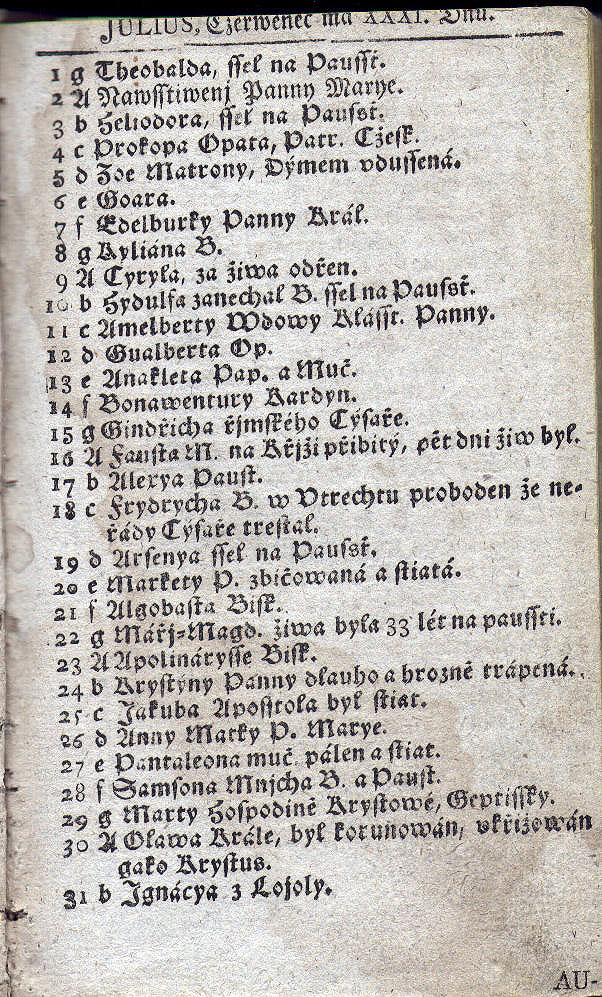 JULIUS, Czerwenec má XXXI. Dnů.
1 g Theobalda, ſſel na Pauſſť.
2 A Nawſſtiwenj Panny Marye.
3 b Heliodora, ſſel na Pauſsť.
4 c Prokopa Opata, Patr. Cžeſk.
5 d Zoe Matrony, Dýmem vduſſená.
6 e Goara.
7 f Edelburky Panny Král.
8 g Kyliána B.
9 A Cyryla, za žiwa odřen.
10 b Hydulfa zanechal B. ſſel na Pauſsť.
11 c Amelberty Wdowy Kláſſt. Panny.
12 d Gualberta Op.
13 e Anakleta Pap. a Muč.
14 f Bonawentury Kardyn.
15 g Gindřicha řjmſkého Cýſaře.
16 A Fauſta M. na Křjži přibitý, pět dni žiw byl.
17 b Alexya Pauſt.
18 c Frydrycha B. w Vtrechtu proboden že ne-
řády Cýſaře treſtal.
19 d Arſenya ſſel na Pauſsť.
20 e Markety P. zbičowaná a ſtiatá.
21 f Algobaſta Biſk.
22 g Mářj-Magd. žiwa byla 33 lét na pauſſti.
23 A Apolinárysſe Biſk.
24 b Kryſtýny Panny dlauho a hrozně trápená.
25 c Jakuba Apoſſtola byl ſtiat.
26 d Anny Matky P. Marye.
27 e Pantaleona muč. pálen a ſtiat.
28 f Samſona Mnjcha B. a Pauſt.
29 g Marty Hoſpodině Kryſtowé, Geptiſſky.
30 A Olawa Krále, byl korunowán, vkřižowán
gako Kryſtus.
31 b Jgnácya z Lojoly.
AU-